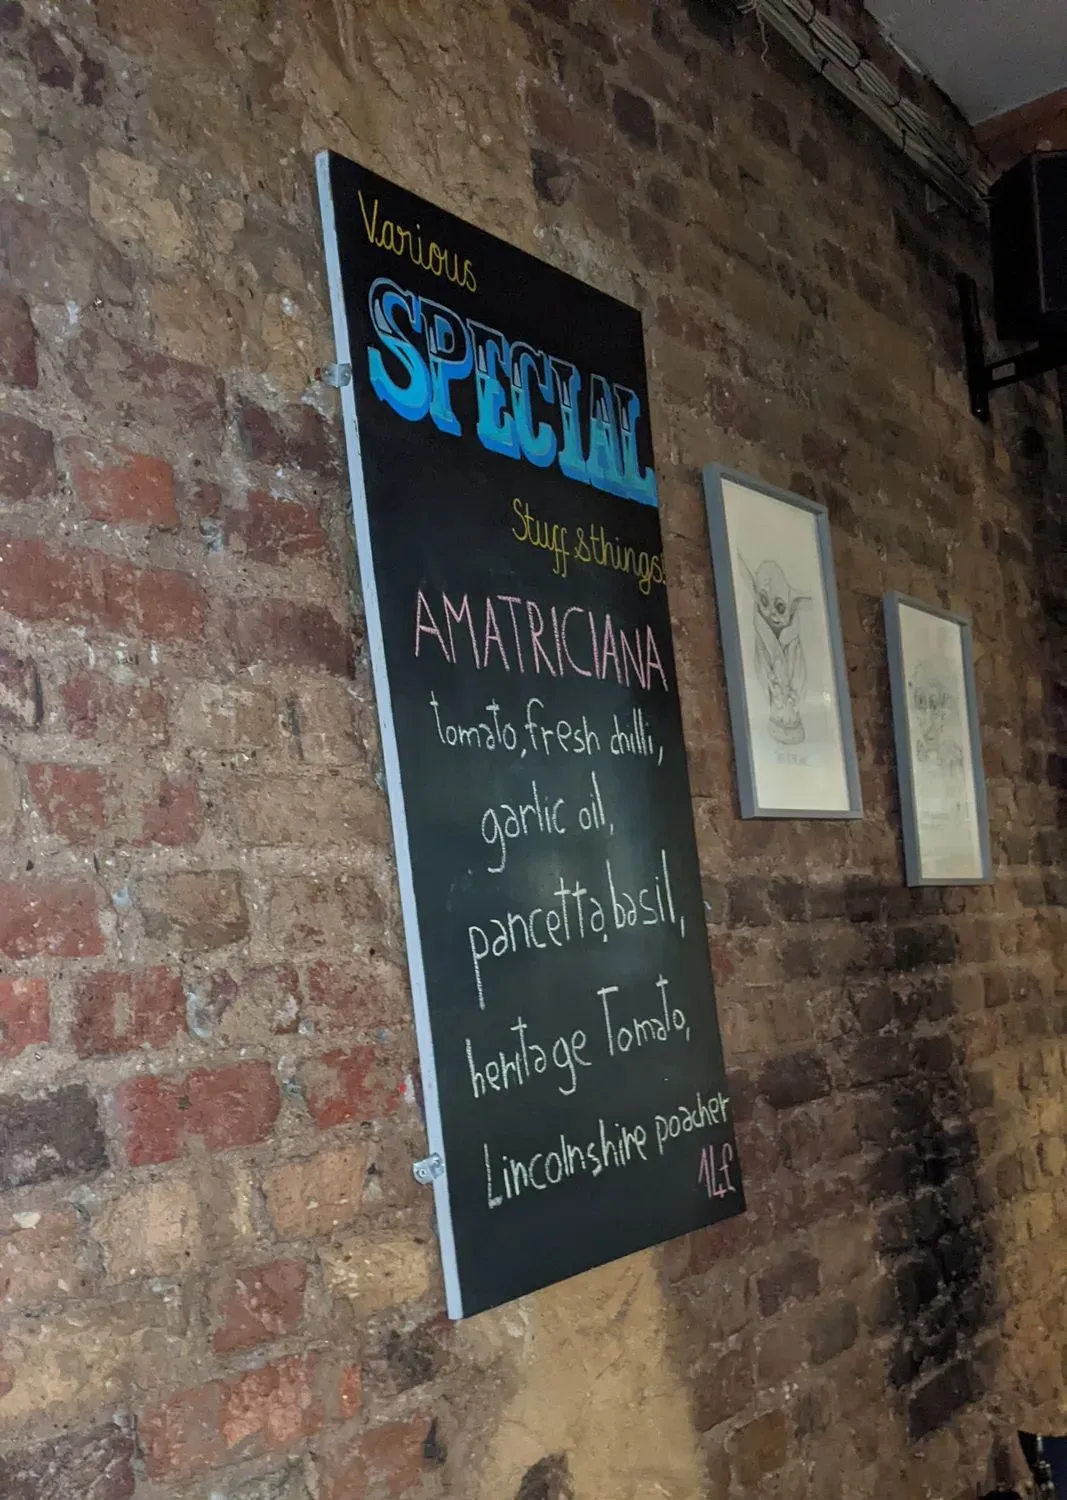 Various
SPECIAL
Stuff & things!
AMATRICIANA
tomato, fresh chilli,
garlic oil,
pancetta, basil,
heritage Tomato,
Lincolnshire poacher
14£